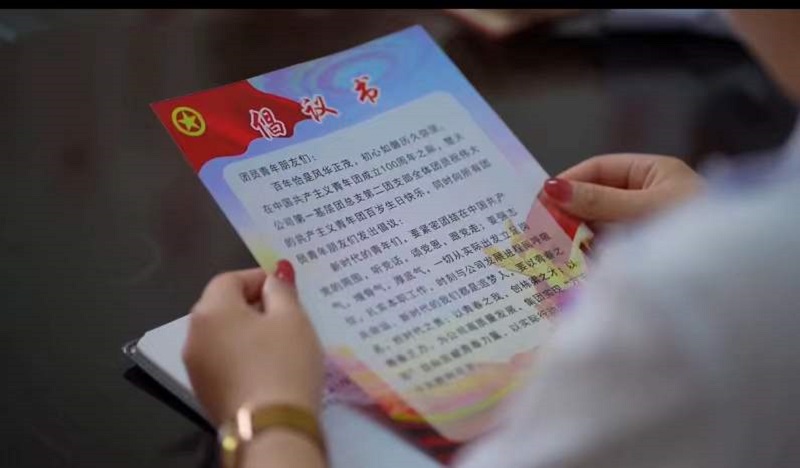 倡议书
团员青年朋友们：
百年恰是风华正茂，初心如磐历久弥坚。
在中国共产主义青年团成立100周年之际，暨火
公司第一基层团总支第二团支部全体团员祝伟大
的共产主义青年团百岁生日快乐，同时向所有团
员青年朋友们发出倡议：
新时代的青年们，要紧密团结在中国共产
党的周围，听党话，颂党恩，跟党走；要强志
气，增骨气，厚底气，一切从实际出发立足岗
位，扎实本职工作，时刻与公司发展
新时代的我们都是追梦人，要以青春之
担时代之责，以青春之我，创
青春之力，为公司高质量发展，集团
贡献青春力量，以实际行